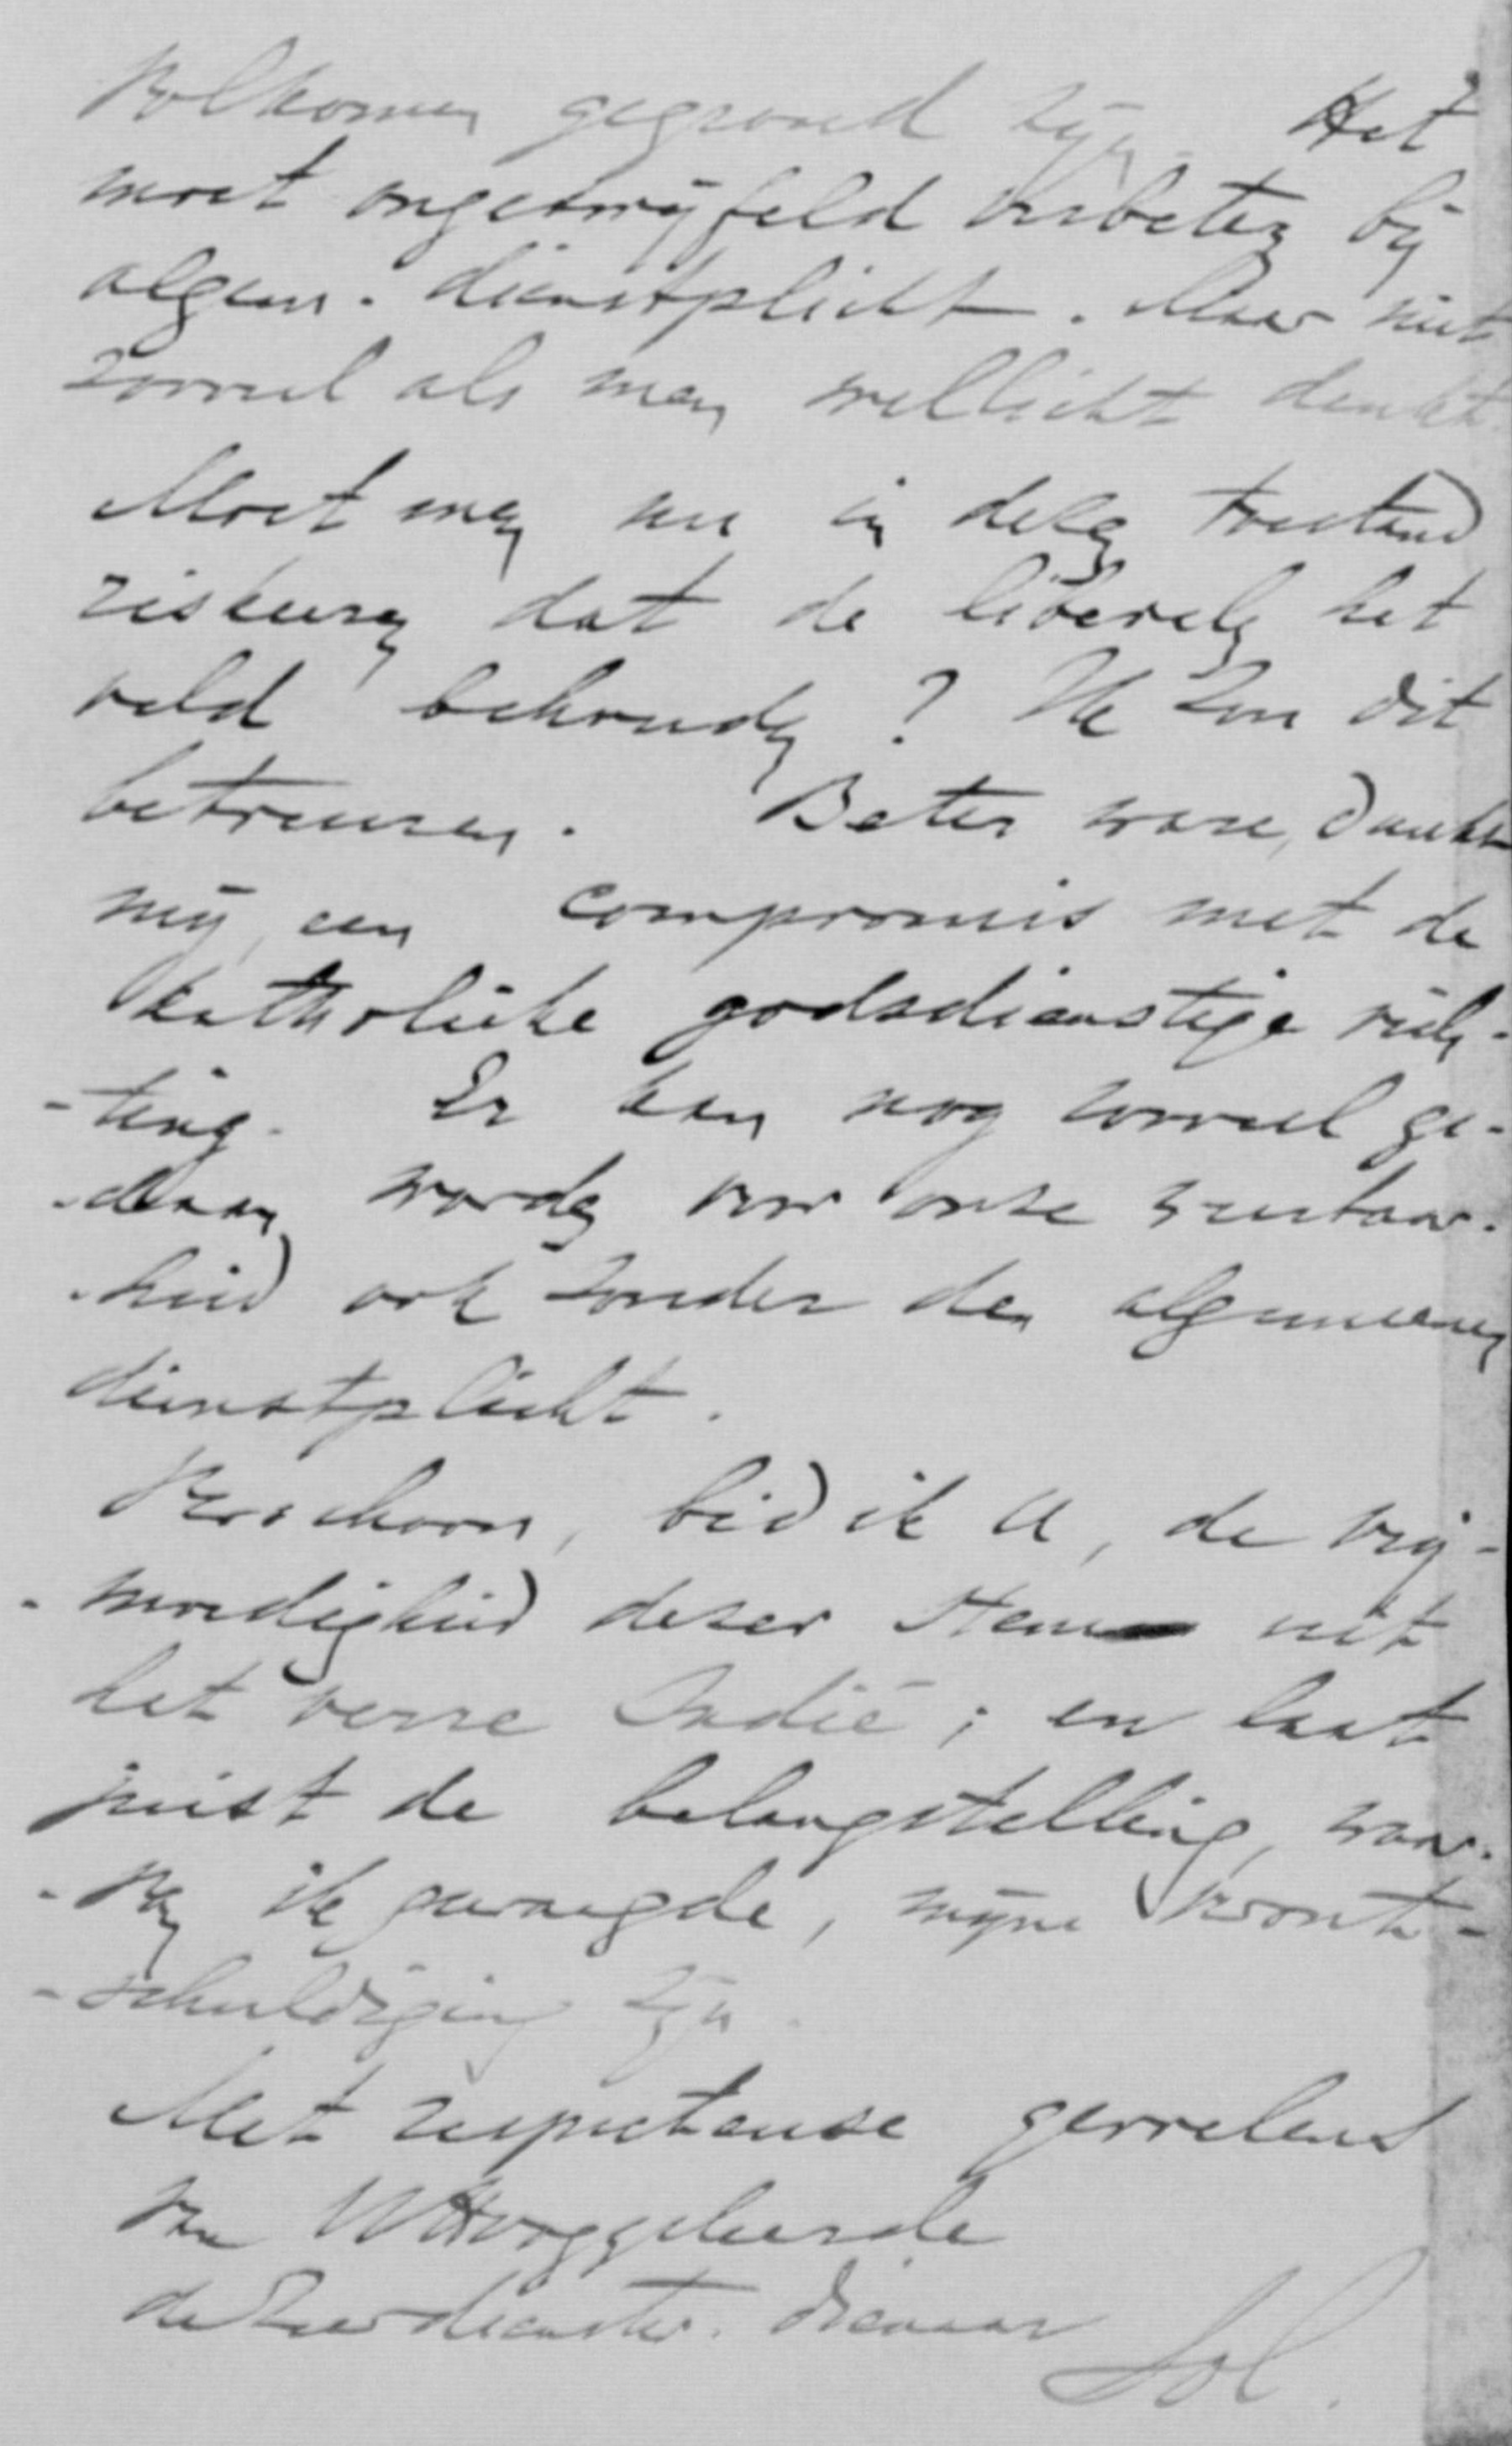 Volkomen gegrond zijn. Het
moet ongetwijfeld verbeteren bij
algem. dienstplicht. Maar niet
zooveel als men wellicht denkt.
Moet men nu in dezen toestand
riskeeren dat de liberalen het
veld behouden? Ik zou dit
betreuren. Beter ware, dunkt
mij, een compromis met de
katholieke godsdienstige rich-
-ting. Er kan nog zooveel ge-
-daan worden voor onze weerbaar-
-heid ook zonder den algemeenen
dienstplicht.
Verschoon, bid ik U, de vrij-
-moedigheid dezer stem uit
het verre Indië; en laat
juist de belangstelling, waar-
-van ik gewaagde, mijne veront-
-schuldiging zijn.
Met respectueuse gevoelens
van UHooggeleerde
de Zeer dienstw. dienaar
Sol.